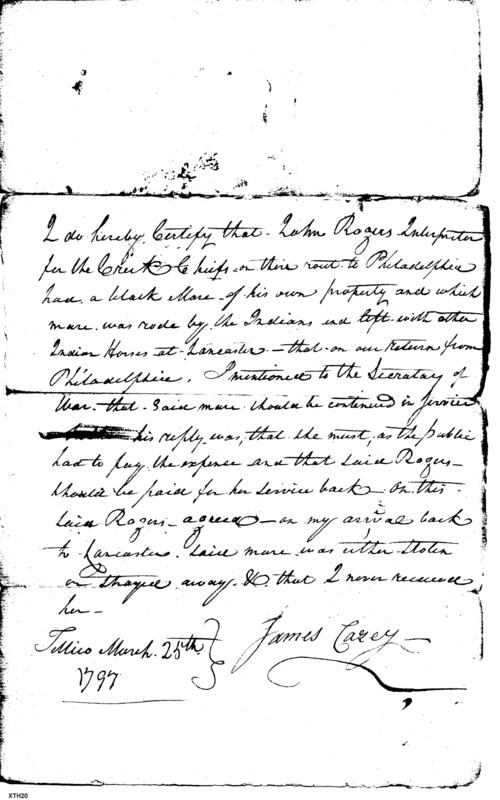 I do hereby Certify that John Rogers Interpreter
for the Creek Chiefs on their rout to Philadelphia
had a black Mare of his own property and which
mare was rode by the Indians and left with other
Indian Horses at Lancaster – that on our return from
Philadelphia, I mentioned to the Secratary of
War that Said mare should be continued in service
his reply was, that she must, as the public
had to pay the expence and that said Rogers –
should be paid for her service back – On this
said Rogers – agreed – on my arrival back
to Lancaster. Said mare was either stolen
or strayed away & that I never received
her –
Tellico March 25th
1797
James Carey –
XTH20